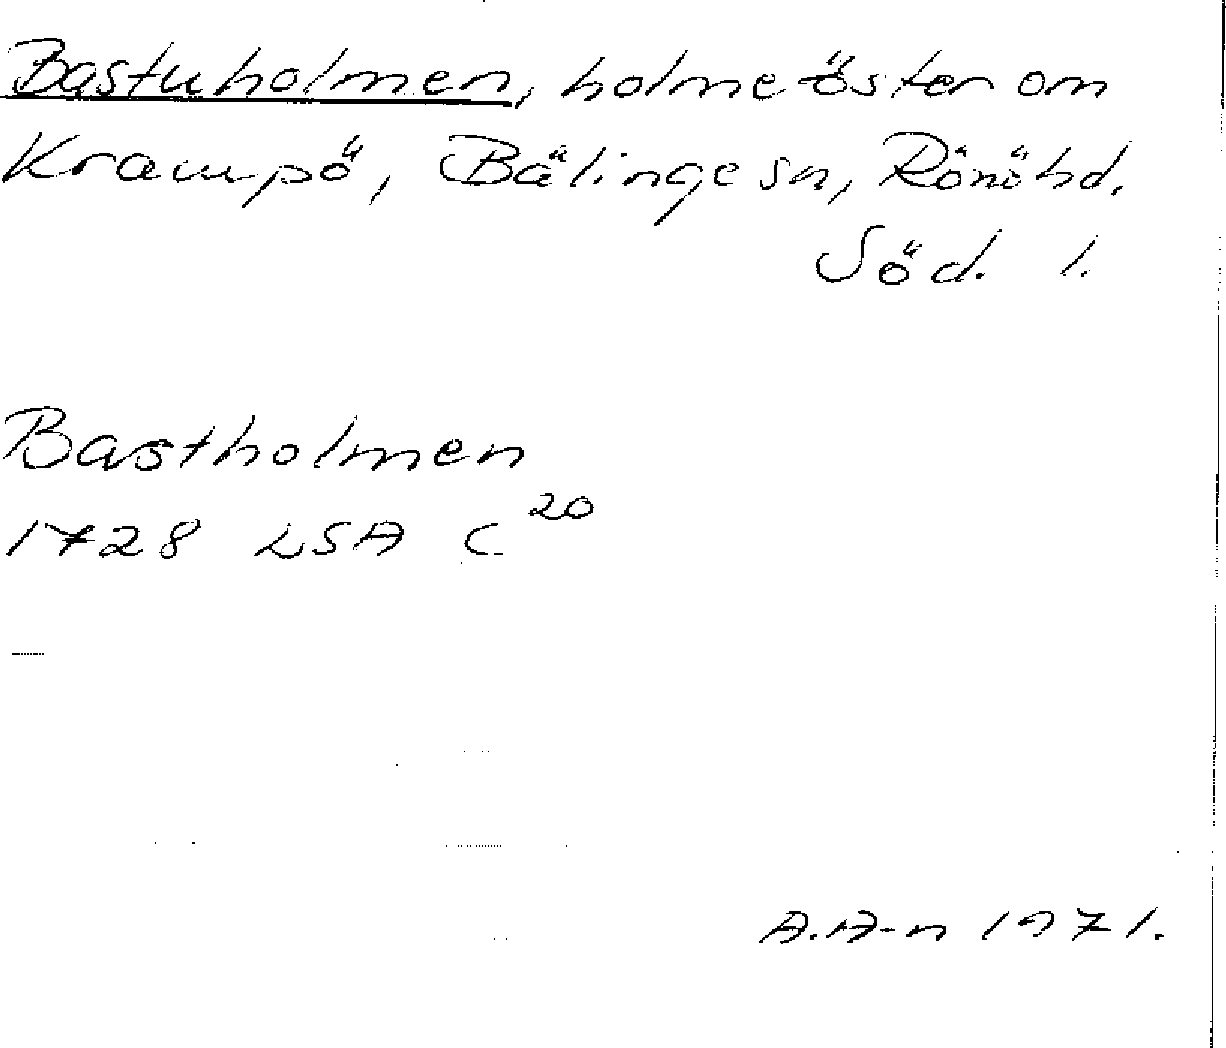 Bastuholmen, holme öster om
Krampö, Bälinge sn, Rönö hd.
Söd. l.
Bastholmen
1728 LSA C 20
A.A-n 1971.